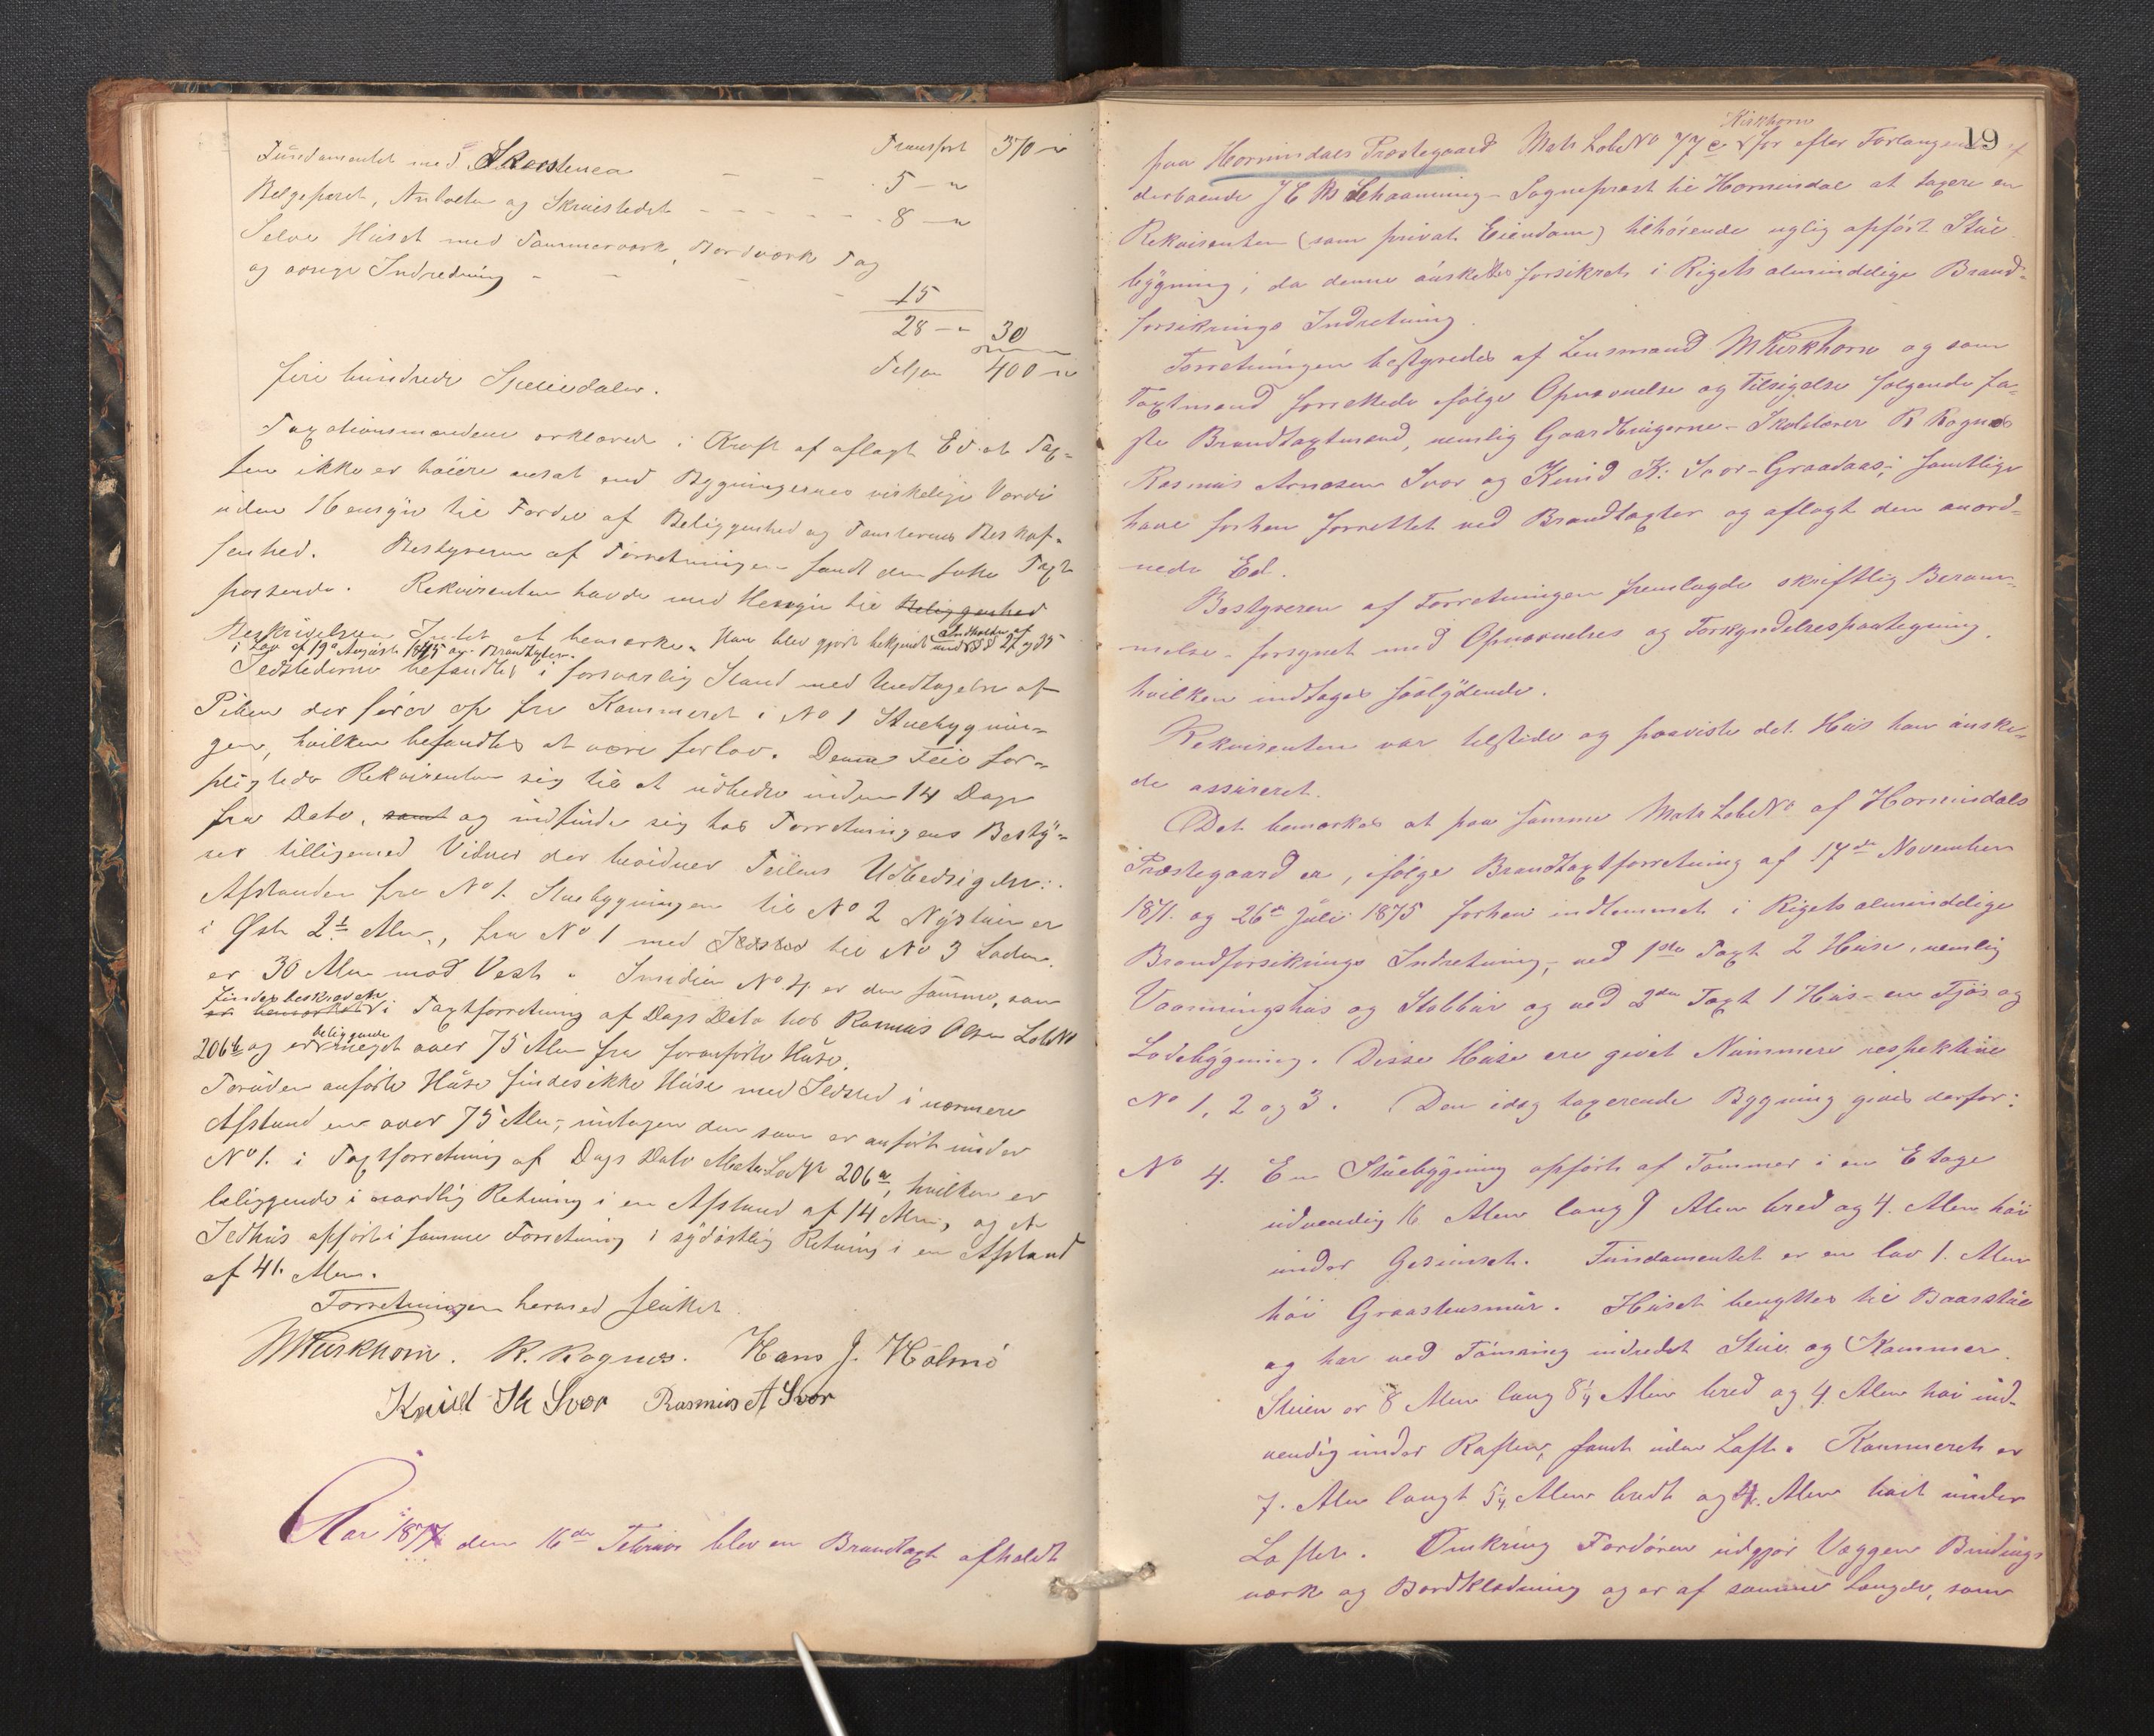 Transport 370 "
Fundamentet med Skorstenen - - 5 - "
Belgeparet, Ambolten og Skruestedet - - - - 8 - "
Selve Huset med Tømmerværk, Bordværk Tag
og øvrige Indredning - - - 15
28 - " 30
Tilsam 400 "
fire hundrede Speciedaler.
Taxationsmændene erklærede i Kraft af aflagt Ed at Tax-
ten ikke er høiere ansat end Bygningernes virkelige Værdi
uden Hensyn til Fordel af Beliggenhed og Tomternes Beskaf-
fenhed. Bestyreren af Forretningen fandt den satte Taxt
passende. Rekvirenten havde med Hensyn til Beliggenhed
Beskrivelsen Intet at bemærke. Han blev gjort bekjendt med Indholdet af §§ 27 og 35
i Lov af 19de August 1845 og Brandtaxten.
Ildstederne befandtes i forsvarlig Stand med Undtagelse af
Piben der fører op fra Kammeret i No 1 Stuebygnin-
gen, hvilken befandtes at være for lav. Denne Feil for-
pligtede Rekvirenten sig til at udbedre inden 14 Dage
fra Dato, samt og indfinde sig hos Forretningens Besty-
rer tilligemed Vidner der bevidner Feilens Udbedrigelse.
Afstanden fra No 1. Stuebygningen til No 2 Nystuen er
i Øst 2½ Alen, fra No 1 med Ildsted til No 3 Laden
er 30 Alen mod Vest. Smidien No 4 er den samme, som
findes beskreven
er bemærket i Taxtforretning af Dags Dato hos Rasmus Olsen LøbeNo
206b og er beliggende meget over 75 Alen fra foranførte Huse.
Foruden anførte Huse findes ikke Huse med Ildsted i nærmere
Afstand end over 75 Alen, undtagen den som er anført under
No 1. i Taxtforretning af Dags Dato Matr LøbNo 206a, hvilken er
beliggende i nordlig Retning i en Afstand af 14 Alen, og et
Ildhus opført i samme Forretning i sydøstlig Retning i en Afstand
af 41. Alen.
Forretningen hermed sluttet
MKirkhorn. R. Rognes. Hans J. Holmö
Knud K Svor Rasmus A Svor
Aar 1877 den 16de Februar blev en Brandtaxt afholdt
19
Kirkhorn
paa Hornindals Præstegaard Matr LøbeNo 77 c for efter Forlangende af
derboende J C B Schaanning - Sogneprest til Hornindal at taxere en
Rekvirenten (som privat Eiendom) tilhørende nylig opført Stue
bygning, da denne ønskedes forsikret i Rigets almindelige Brand-
forsikrings Indretning.
Forretningen bestyredes af Lensmand MKirkhorn og som
Taxtmænd forrettede ifølge Opnævnelse og Tilsigelse følgende fa-
ste Brandtaxtmænd, nemlig Gaardbrugerne - Skolelærer R Rognes
Rasmus Arnesen Svor og Knud K. Svor-Graadaas; samtlige
have forhen forrettet ved Brandtaxter og aflagt den anord-
nede Ed.
Bestyreren af Forretningen fremlagde skriftlig Beram-
melse - forsynet med Opnævnelses og Forkyndelsespaategning,
hvilken indtages saalydende.
Rekvirenten var tilstede og paaviste det Hus han ønske-
de assureret.
Det bemærkes at paa samme Matr LøbeNo af Hornindals
Præstegaard er, ifølge Brandtaxtforretning af 17de November
1871. og 26de Juli 1875 forhen indlemmet i Rigets almindelige
Brandforsikrings Indretning, ved 1ste Taxt 2 Huse, nemlig
Vaaningshus og Stabbur og ved 2den Taxt 1 Hus - en Fjøs og
Ladebygning. Disse Huse ere givet Nummere respektive
No 1, 2 og 3. Den idag taxerende Bygning gives derfor:
No 4. En Stuebygning opført af Tømmer i en Etage
udvendig 16 Alen lang 9 Alen bred og 4. Alen høi
under Gesimset. Fundamentet er en lav 1. Alen
høi Graastensmur. Huset benyttes til Baarstue
og har ved Tømring indredet Stue og Kammer.
Stuen er 8 Alen lang 8¼ Alen bred og 4 Alen høi ind-
vendig under Raften, samt uden Loft. Kammeret er
7. Alen langt 5¼ Alen bredt og 4. Alen høit under
Loftet. Omkring Fordøren udgjør Væggene Bindings
værk og Bordklædning og er af samme Længde, som